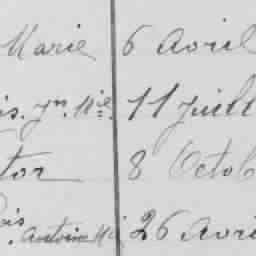 Marie 6 Avril
is. Jn. Mie. 11 Juill
tor 8 Octob
ois. Antoine 26 Avri